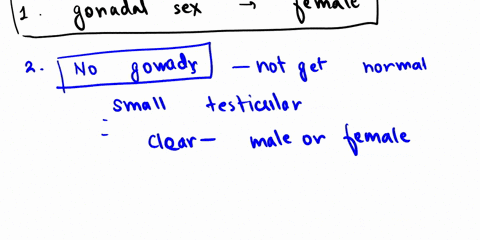 1. gonadal sex → female
2. No gowads — not get normal
small testicular
= clear — male or female